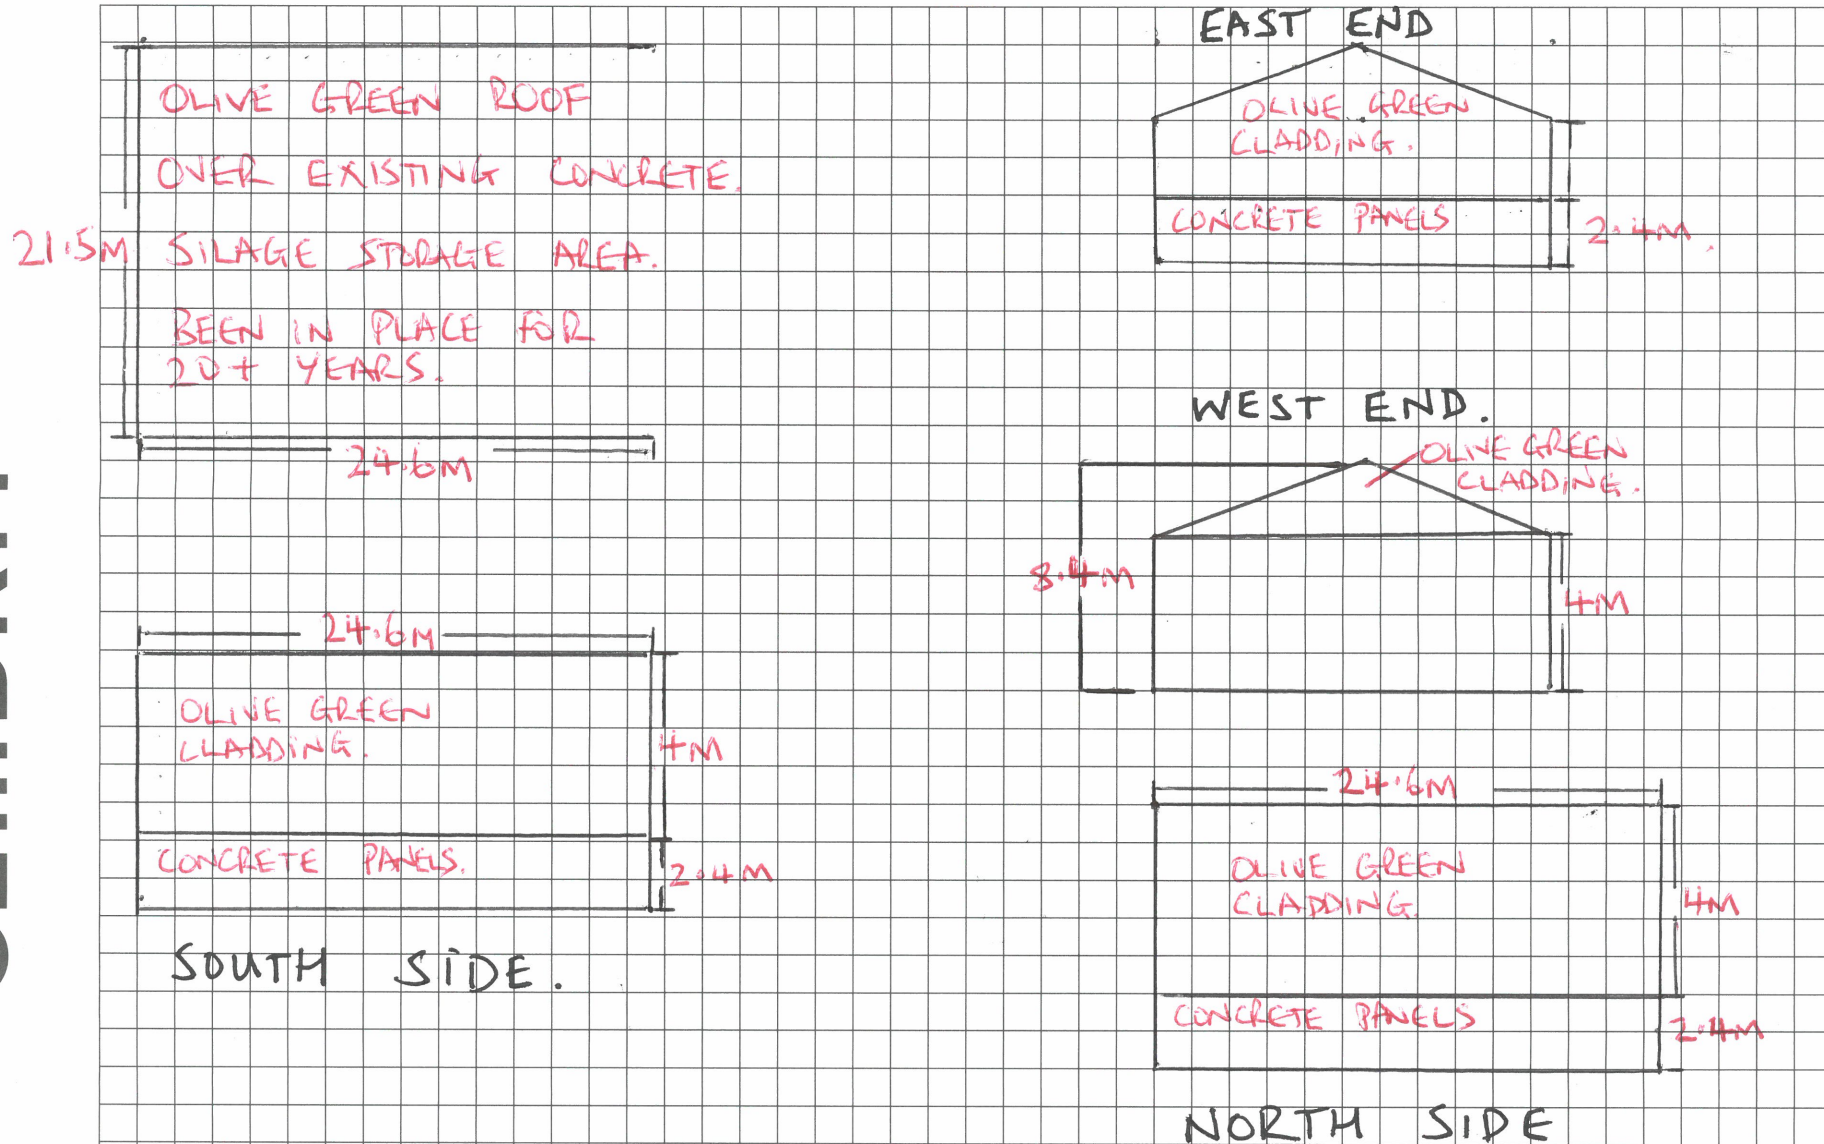 OLIVE GREEN ROOF
OVER EXISTING CONCRETE.
21.5M
SILAGE STORAGE AREA.
BEEN IN PLACE FOR
20+ YEARS.
24.6M
24.6M
OLIVE GREEN
CLADDING.
4M
CONCRETE PANELS.
2.4M
SOUTH SIDE.
EAST END
OLIVE GREEN
CLADDING.
CONCRETE PANELS
2.4M.
WEST END.
OLIVE GREEN
CLADDING.
8.4M
4M
24.6M
OLIVE GREEN
CLADDING.
4M
CONCRETE PANELS
2.4M
NORTH SIDE